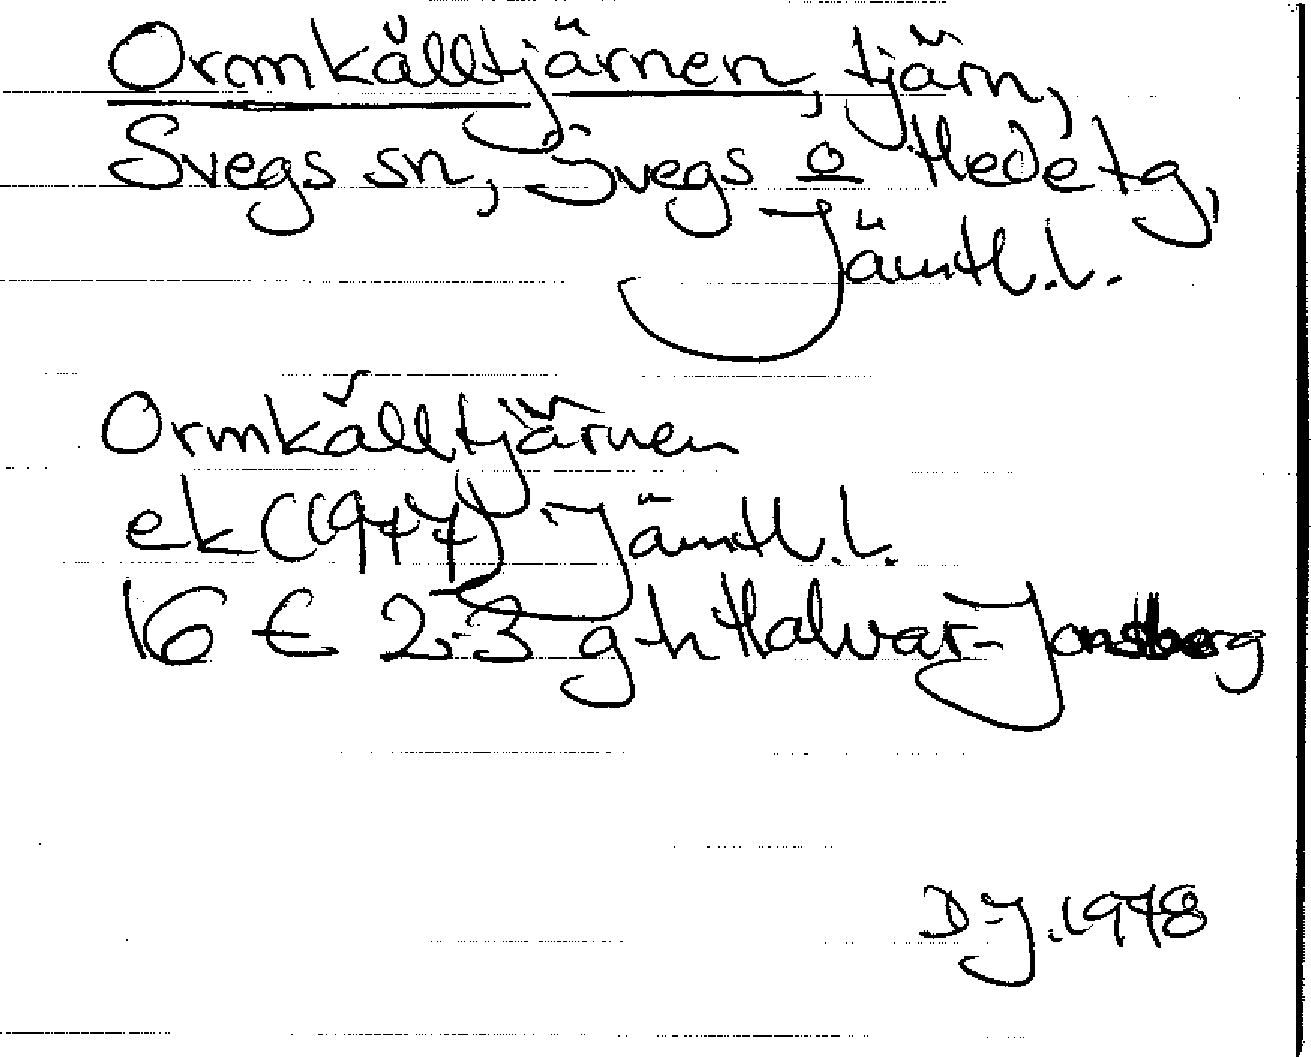 Ormkälltjärnen, tjärn,
Svegs sn, Svegs o Hede tg,
Jämtl.l.
Ormkälltjärnen
ek (1977) Jämtl.l.
16 E 2-3 g-h Halvar-Jonsberg
D-J. 1978